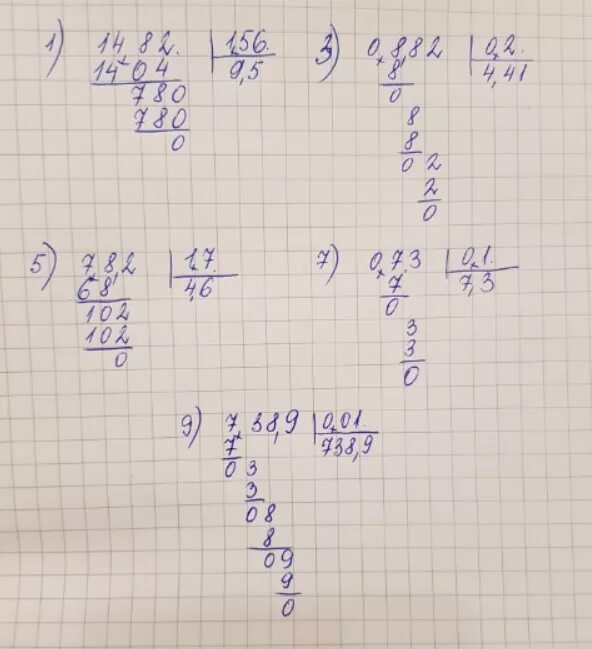 1) 14,82. | 1,56.
1404 9,5
780
780
0
3) 0,8,82 | 0,2.
8 4,41
0
8
8
0 2
2
0
5) 7,8,2 | 1,7.
68 4,6
102
102
0
7) 0,7,3 | 0,1.
7 7,3
0
3
3
0
9) 7,38,9 | 0,01.
7 738,9
0 3
3
08
8
09
9
0